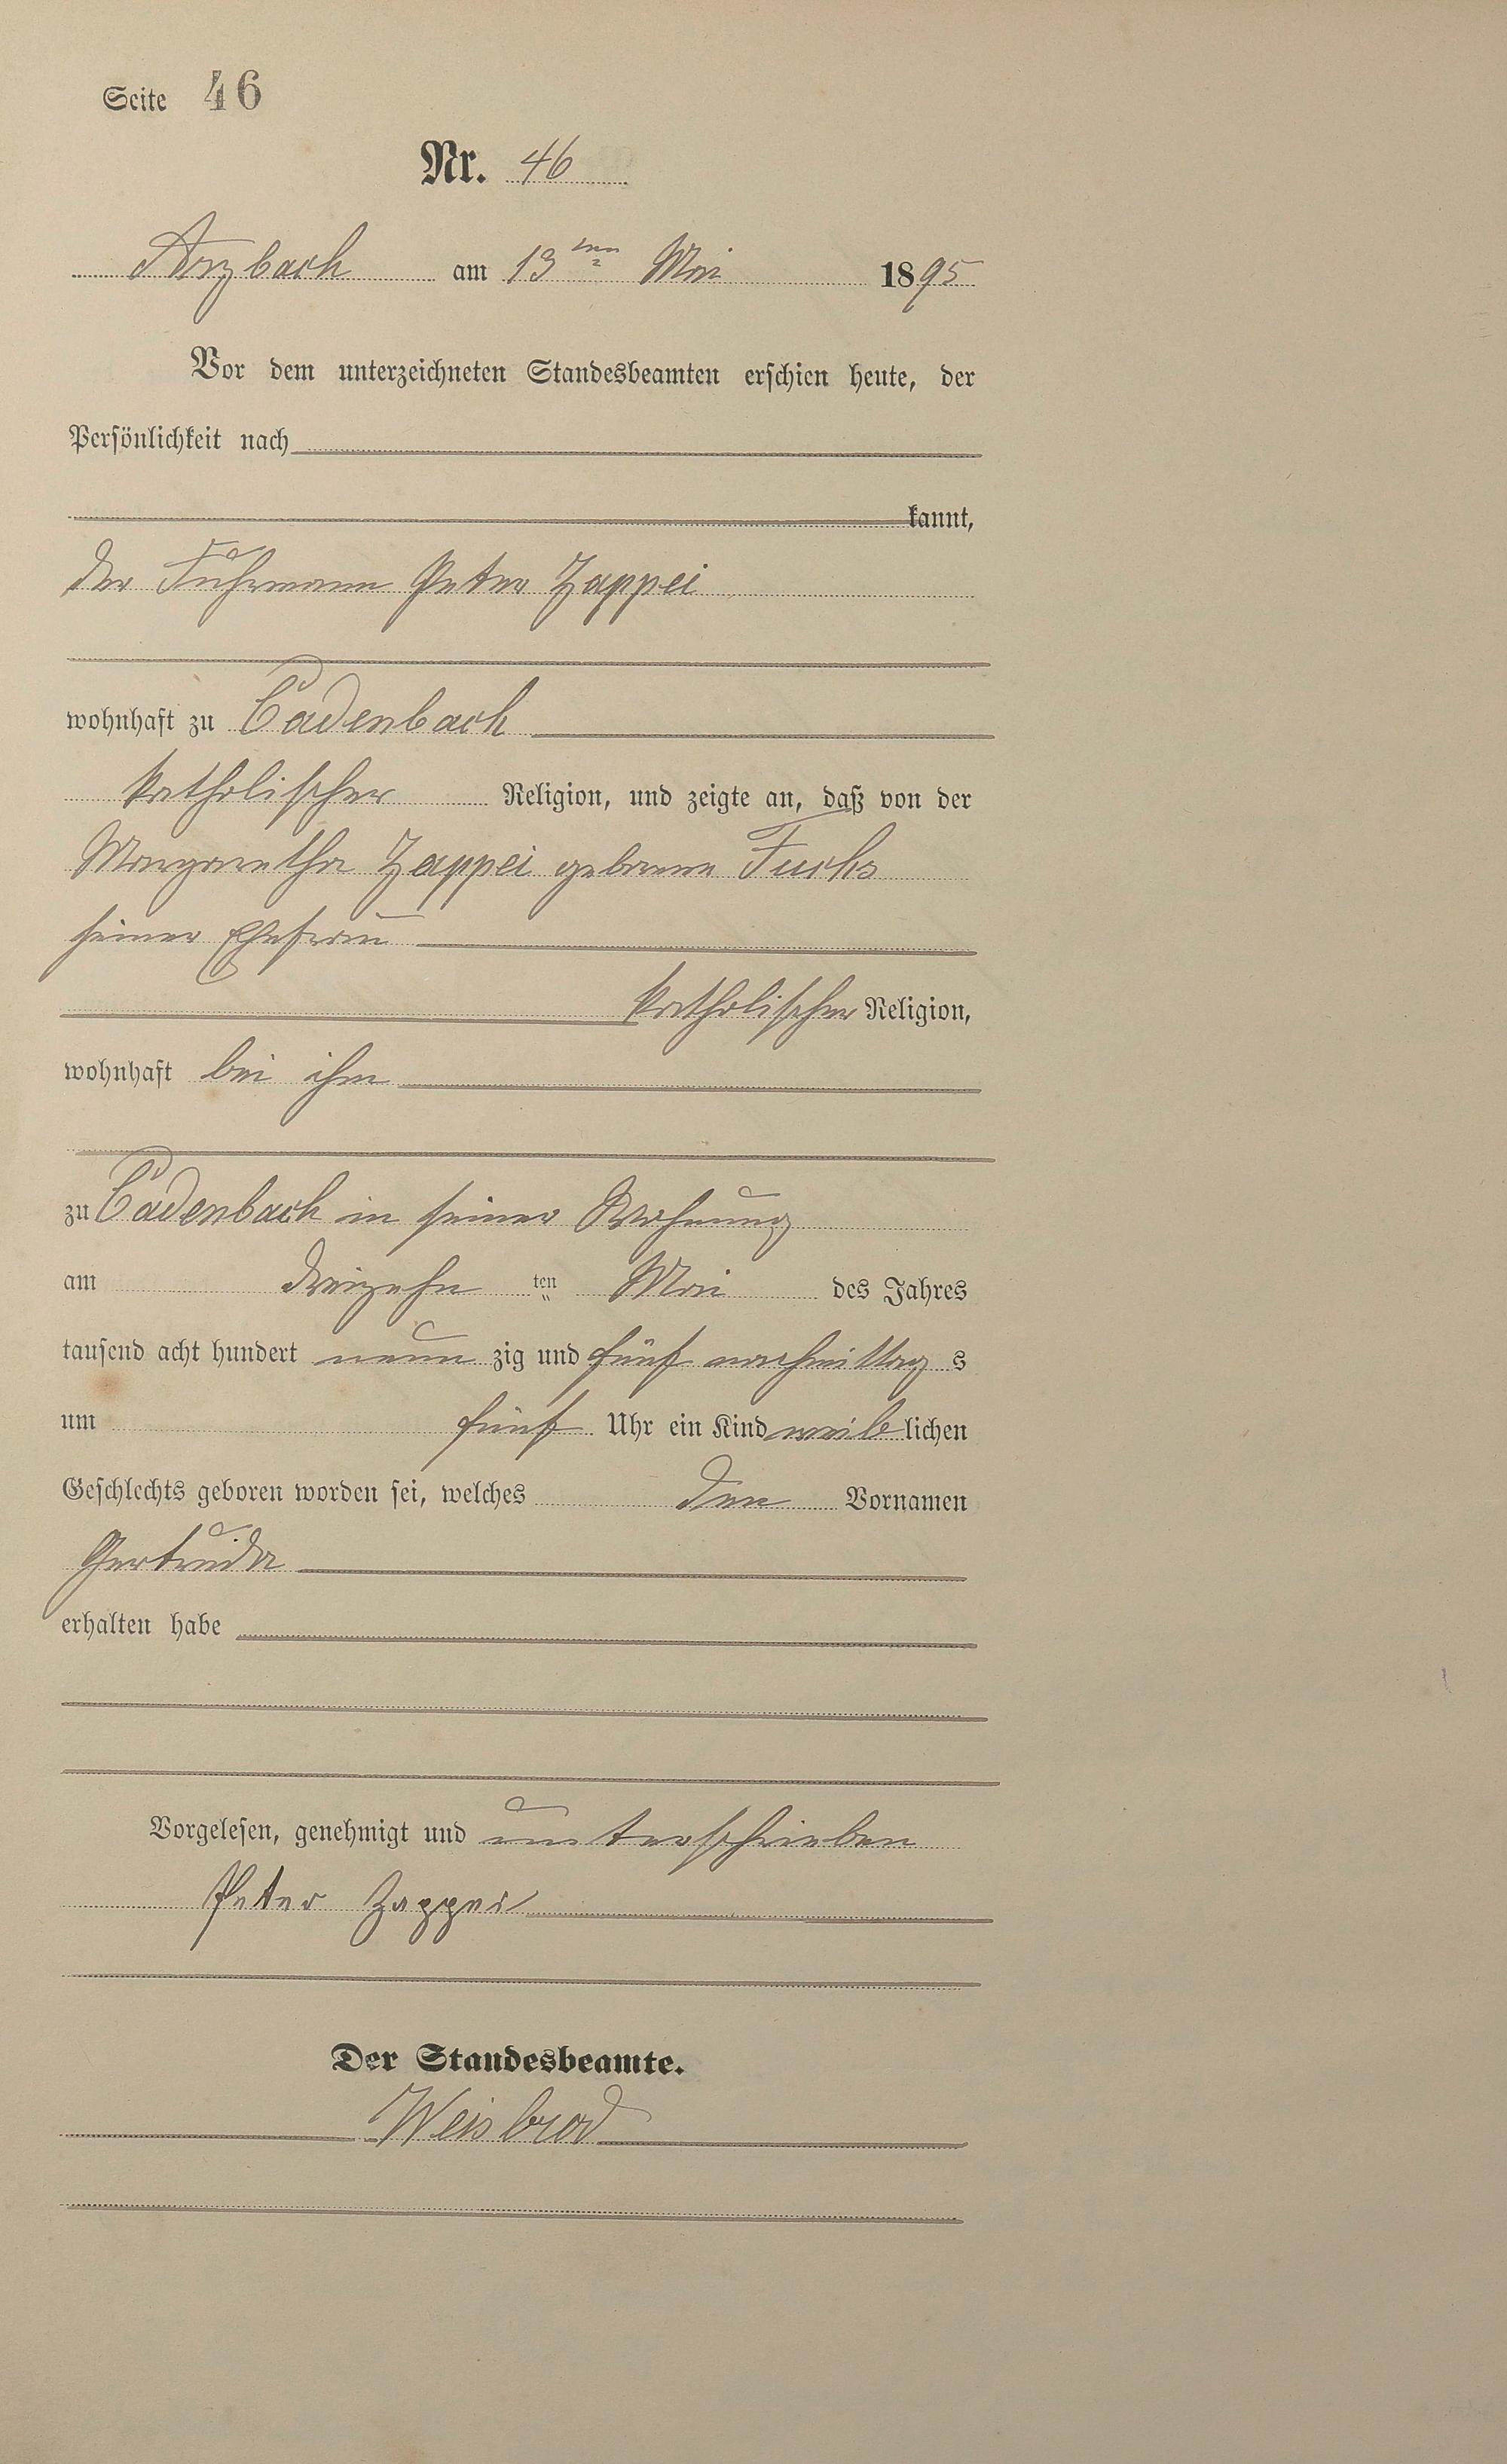 Seite 46
Nr. 46
Arzbach am 13ten Mai 1895
Vor dem unterzeichneten Standesbeamten erschien heute, der
Persönlichkeit nach
kannt,
der Fuhrmann Peter Zappei
wohnhaft zu Cadenbach
katholischer Religion, und zeigte an, daß von der
Margaretha Zappei geborene Fuchs
seiner Ehefrau
katholischer Religion,
wohnhaft bei ihm
zu Cadenbach in seiner Wohnung
am dreizehn ten Mai des Jahres
tausend acht hundert neun zig und fünf nachmittag s
um fünf Uhr ein Kind weib lichen
Geschlechts geboren worden sei, welches den Vornamen
Gertruda
erhalten habe
Vorgelesen, genehmigt und unterschrieben
Peter Zappei
Der Standesbeamte.
Weisbrod